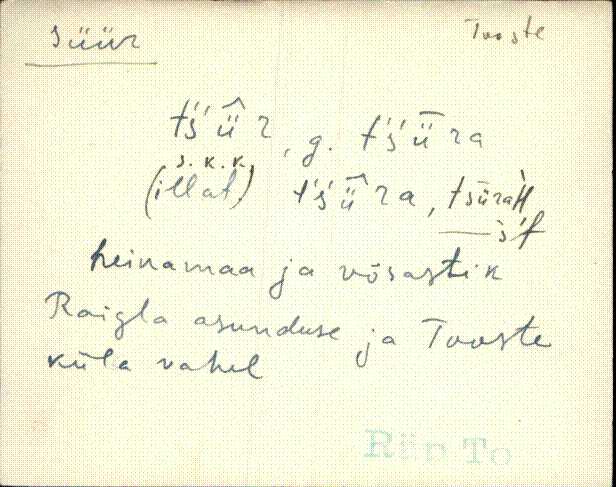 süür Tooste
t́ś ǖ̂ r, g. t́ś ǖ ra
s. k. k.
(illat) t́ś ǖ̂ ra,
heinamaa ja võsastik
Raigla asunduse ja Tooste
küla vahel
Räp To